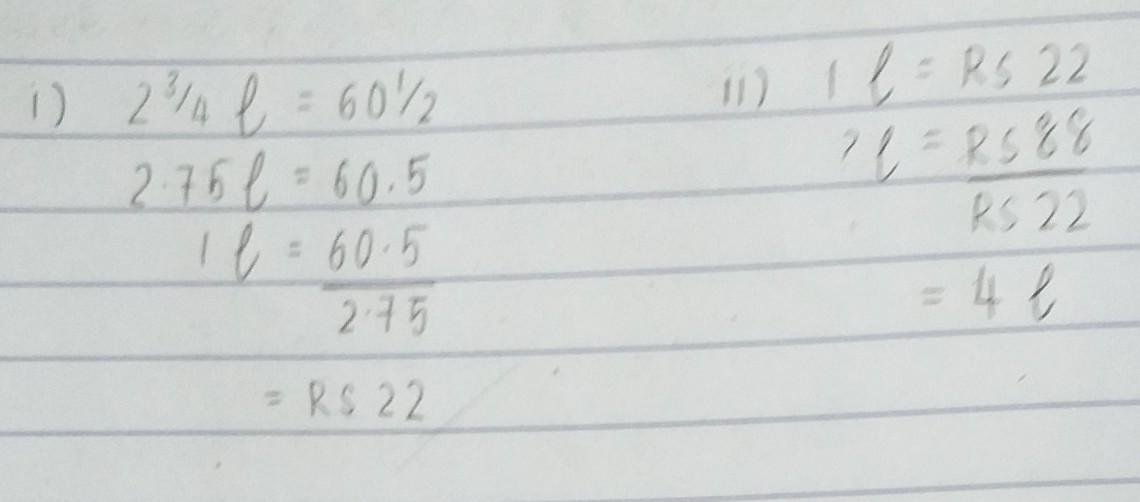 i) 2 3/4 l = 60 1/2
2.75 l = 60.5
1 l = 60.5
2.75
= RS 22
ii) 1 l = RS 22
? l = RS 88
RS 22
= 4 l